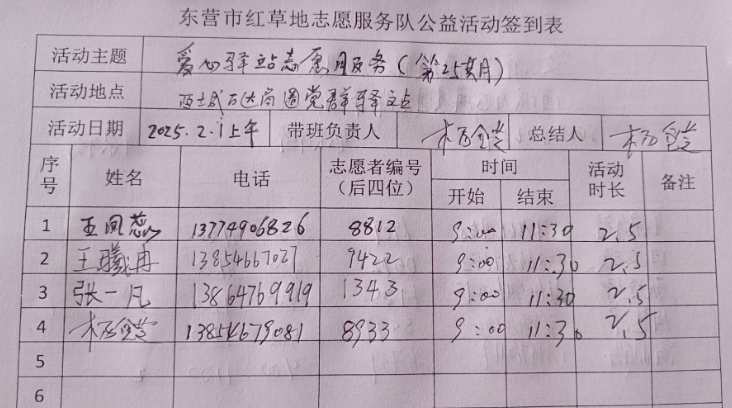 东营市红草地志愿服务队公益活动签到表
活动主题 爱心驿站志愿服务(第25期)
活动地点 西城万达商圈党群驿站
活动日期 2025.2.1上午 带班负责人 总结人
序号 姓名 电话 志愿者编号(后四位) 时间 开始 结束 活动时长 备注
1 王凤蕊 13774906826 8812 9:00 11:30 2.5
2 王曦冉 13854667027 9422 9:00 11:30 2.5
3 张一凡 13864769919 1343 9:00 11:30 2.5
4 13854679081 8933 9:00 11:30 2.5
5
6